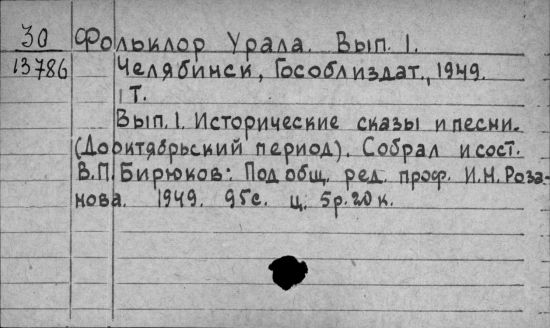 30 Фольклор Урала. Вып. 1.
13786 Челябинск, Гособлиздат., 1949.
1 т.
Вып. 1. Исторические сказы и песни.
(Дооктябрьский период). Собрал и сост.
В.П. Бирюков: Под общ. ред. проф. И.Н. Роза-
нова. 1949. 95с. ц. 5р.20к.